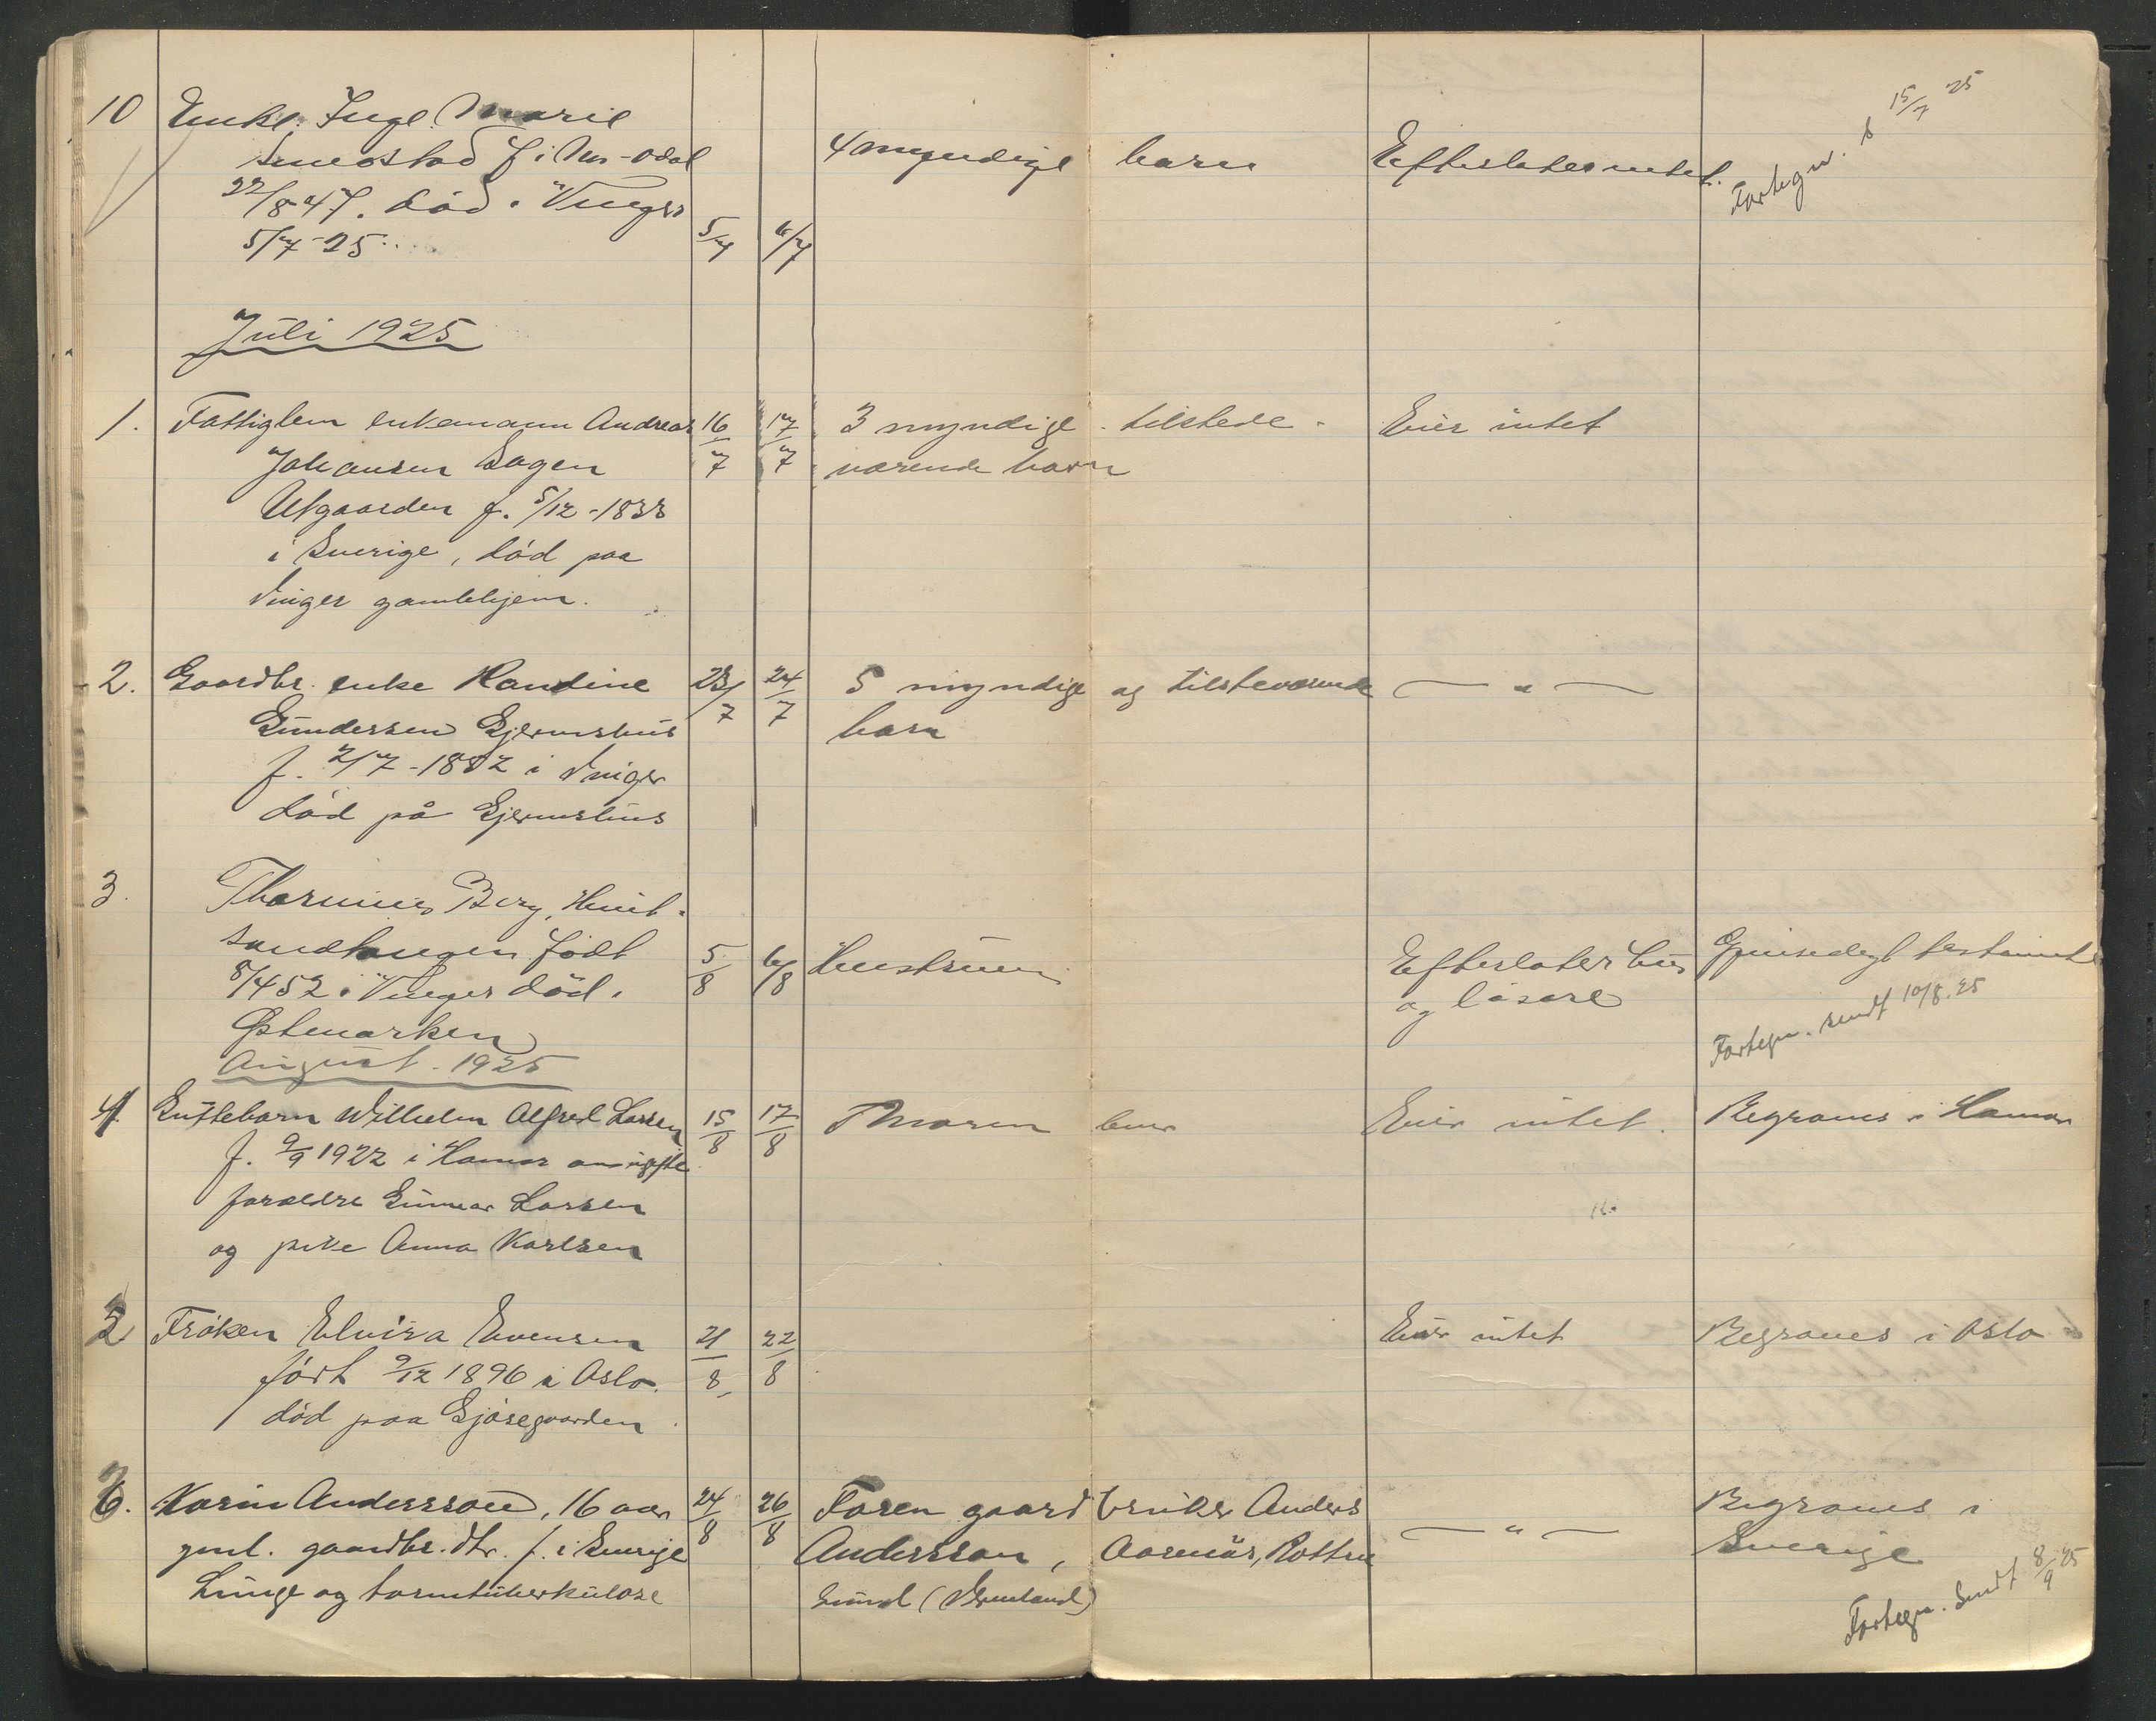 10 Enke. Inge. Marie 15/7 25
Smedstad f i Nor-Odal 4 myndige barn Efterlater intet. Fortegn. s
22/8 47. död i Vinger
5/7-25 5/7 6/7
Juli 1925
1. Fattiglem enkemann Andreas 16/7 17/7 3 myndige tilstede- Eier intet
Johansen Sagen værende barn
Utgaarden f. 5/12-1833
i Sverige, död paa
Vinger gamlehjem.
2. Gaardbr. enke Randine 23/7 24/7 5 myndige og tilsteværende — " —
Gundersen Gjermshus barn
f. 2/7-1882 i Vinger
död på Gjermshus
3. Thorinius Berg,
sandhaugen född 5/8 6/8 Hustruen Efterlater hus Gjensedigt testamente
8/4 52 i Vinger död i og lösöre Fortegn. sendt 10/8. 25
Östmarken
August. 1925
4. Guttebarn Wilhelm Alfred Larsen 15/8 17/8 Moren lever Eier intet. Begraves i Hamar
f. 9/9 1922 i Hamar av ugifte
foraeldre Gunnar Larsen
og pike Anna Karlsen
2 Fröken Elvira Evensen 21/8 22/8 Eier intet Begraves i Oslo
fört 9/12 1896 i Oslo.
död paa Gjösegaarden
6. Karin Andersson, 16 aar 24/8 26/8 Faren gaardbruker Anders — " — Begraves i
gml. gaardbr. dtr. f. i Sverige Andersson, Aasenäs, Sverige
Lunge og tarmtuberkulose sund (Vermland) Fortegn. Sendt 8/9 25